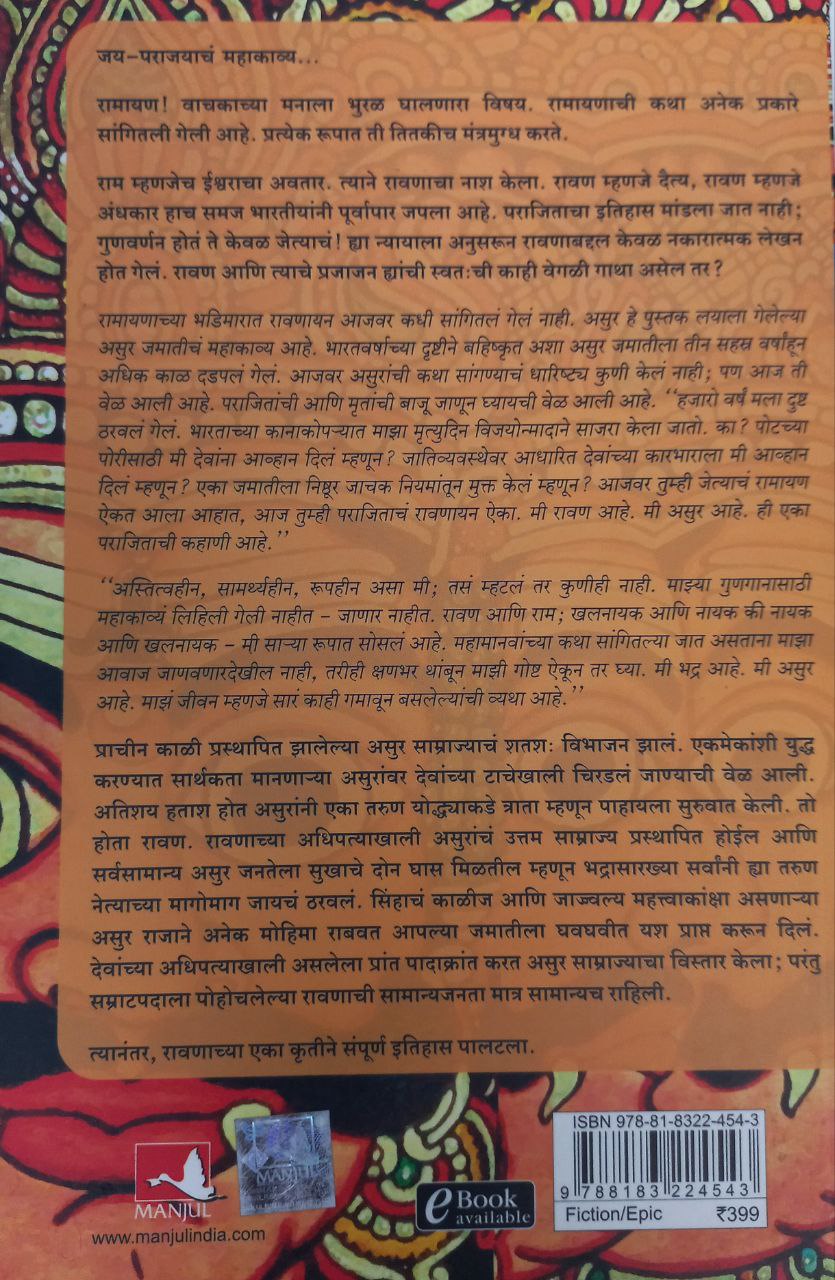 जय-पराजयाचं महाकाव्य...
रामायण! वाचकाच्या मनाला भुरळ घालणारा विषय. रामायणाची कथा अनेक प्रकारे
सांगितली गेली आहे. प्रत्येक रूपात ती तितकीच मंत्रमुग्ध करते.
राम म्हणजेच ईश्वराचा अवतार. त्याने रावणाचा नाश केला. रावण म्हणजे दैत्य, रावण म्हणजे
अंधकार हाच समज भारतीयांनी पूर्वापार जपला आहे. पराजिताचा इतिहास मांडला जात नाही;
गुणवर्णन होतं ते केवळ जेत्याचं! ह्या न्यायाला अनुसरून रावणाबद्दल केवळ नकारात्मक लेखन
होत गेलं. रावण आणि त्याचे प्रजाजन ह्यांची स्वतःची काही वेगळी गाथा असेल तर?
रामायणाच्या भडिमारात रावणायन आजवर कधी सांगितलं गेलं नाही. असुर हे पुस्तक लयाला गेलेल्या
असुर जमातीचं महाकाव्य आहे. भारतवर्षाच्या दृष्टीने बहिष्कृत अशा असुर जमातीला तीन सहस्र वर्षांहून
अधिक काळ दडपलं गेलं. आजवर असुरांची कथा सांगण्याचं धारिष्ट्य कुणी केलं नाही; पण आज ती
वेळ आली आहे. पराजितांची आणि मृतांची बाजू जाणून घ्यायची वेळ आली आहे. ‘‘हजारो वर्षं मला दुष्ट
ठरवलं गेलं. भारताच्या कानाकोपऱ्यात माझा मृत्युदिन विजयोन्मादाने साजरा केला जातो. का? पोटच्या
पोरीसाठी मी देवांना आव्हान दिलं म्हणून? जातिव्यवस्थेवर आधारित देवांच्या कारभाराला मी आव्हान
दिलं म्हणून? एका जमातीला निष्ठूर जाचक नियमांतून मुक्त केलं म्हणून? आजवर तुम्ही जेत्याचं रामायण
ऐकत आला आहात, आज तुम्ही पराजिताचं रावणायन ऐका. मी रावण आहे. मी असुर आहे. ही एका
पराजिताची कहाणी आहे.’’
‘‘अस्तित्वहीन, सामर्थ्यहीन, रूपहीन असा मी; तसं म्हटलं तर कुणीही नाही. माझ्या गुणगानासाठी
महाकाव्यं लिहिली गेली नाहीत - जाणार नाहीत. रावण आणि राम; खलनायक आणि नायक की नायक
आणि खलनायक - मी साऱ्या रूपात सोसलं आहे. महामानवांच्या कथा सांगितल्या जात असताना माझा
आवाज जाणवणारदेखील नाही, तरीही क्षणभर थांबून माझी गोष्ट ऐकून तर घ्या. मी भद्र आहे. मी असुर
आहे. माझं जीवन म्हणजे सारं काही गमावून बसलेल्यांची व्यथा आहे.’’
प्राचीन काळी प्रस्थापित झालेल्या असुर साम्राज्याचं शतशः विभाजन झालं. एकमेकांशी युद्ध
करण्यात सार्थकता मानणाऱ्या असुरांवर देवांच्या टाचेखाली चिरडलं जाण्याची वेळ आली.
अतिशय हताश होत असुरांनी एका तरुण योद्ध्याकडे त्राता म्हणून पाहायला सुरुवात केली. तो
होता रावण. रावणाच्या अधिपत्याखाली असुरांचं उत्तम साम्राज्य प्रस्थापित होईल आणि
सर्वसामान्य असुर जनतेला सुखाचे दोन घास मिळतील म्हणून भद्रासारख्या सर्वांनी ह्या तरुण
नेत्याच्या मागोमाग जायचं ठरवलं. सिंहाचं काळीज आणि जाज्वल्य महत्त्वाकांक्षा असणाऱ्या
असुर राजाने अनेक मोहिमा राबवत आपल्या जमातीला घवघवीत यश प्राप्त करून दिलं.
देवांच्या अधिपत्याखाली असलेला प्रांत पादाक्रांत करत असुर साम्राज्याचा विस्तार केला; परंतु
सम्राटपदाला पोहोचलेल्या रावणाची सामान्यजनता मात्र सामान्यच राहिली.
त्यानंतर, रावणाच्या एका कृतीने संपूर्ण इतिहास पालटला.
MANJUL
www.manjulindia.com
MANJUL
eBook
available
ISBN 978-81-8322-454-3
9 788183 224543
Fiction/Epic ₹399